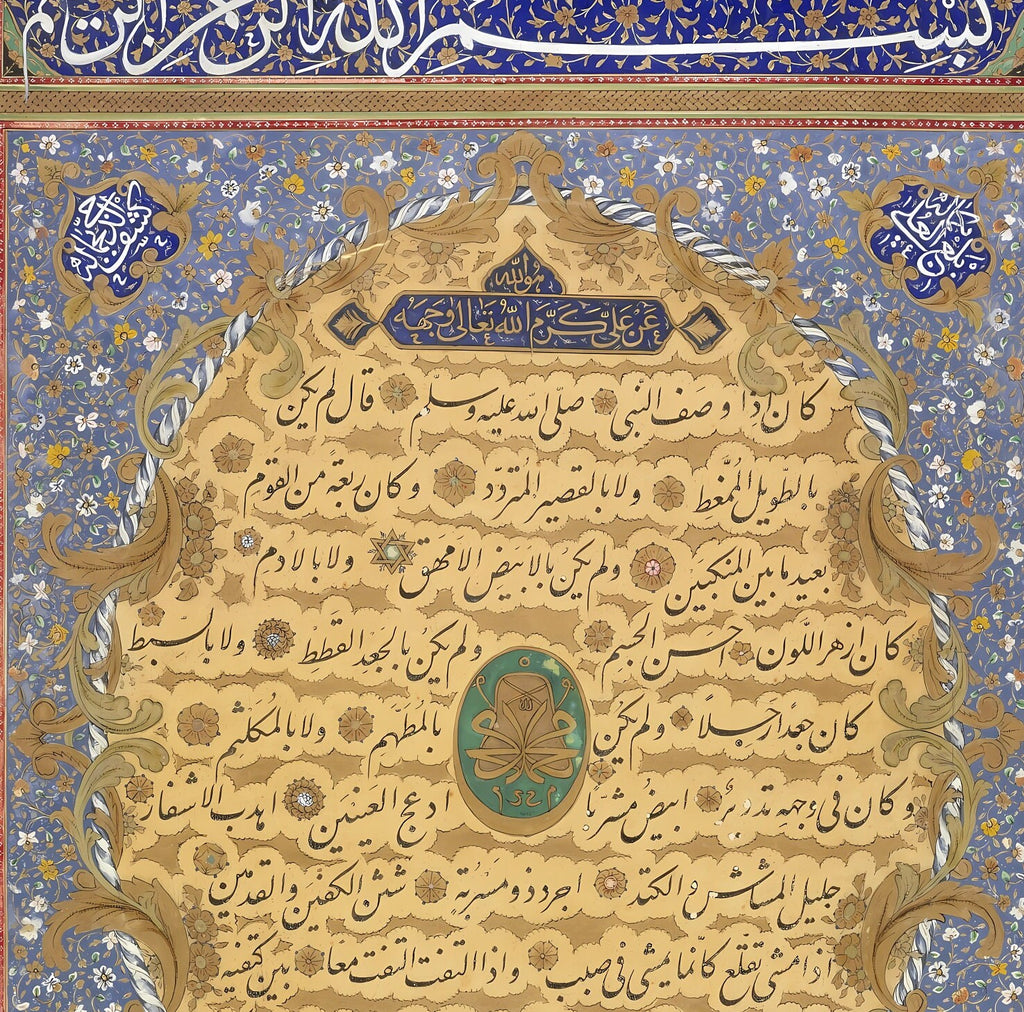 بسم الله الرحمن الرحيم
بلغ العلى بكماله
كشف الدجى بجماله
هو الله
عن علي كرم الله تعالى وجهه
كان اذا وصف النبي صلى الله عليه وسلم قال لم يكن
بالطويل الممغط ولا بالقصير المتردد وكان ربعة من القوم
بعيد ما بين المنكبين ولم يكن بالابيض الامهق ولا بالادم
كان ازهر اللون حسن الجسم ولم يكن بالجعد القطط ولا بالسبط
كان جعدا رجلا ولم يكن بالمطهم ولا بالمكلثم
وكان في وجهه تدوير ابيض مشربا ادعج العينين اهدب الاشفار
الله
جليل المشاش والكتد اجرد ذو مسربة شثن الكفين والقدمين
اذا مشى تقلع كانما يمشي في صبب واذا التفت التفت معا بين كتفيه